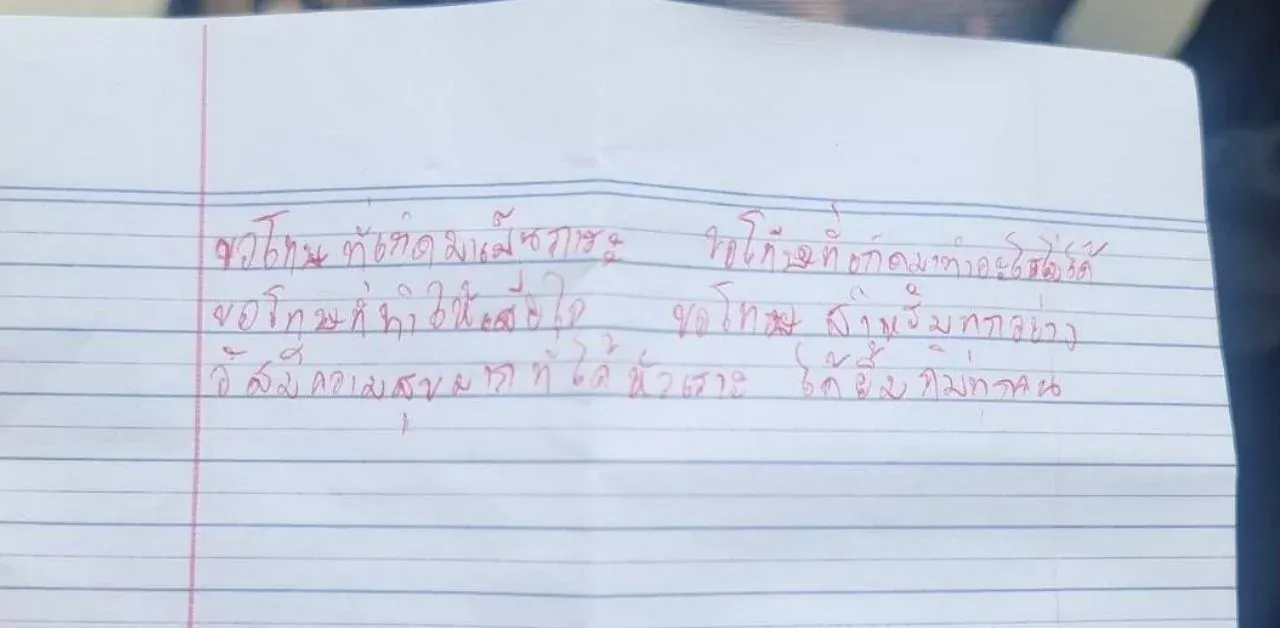 ขอโทษที่เกิดมาเป็นภาระ ขอโทษที่เกิดมาทำอะไรไม่ได้
ขอโทษที่ทำให้เสียใจ ขอโทษ สำหรับทุกอย่าง
มีความสุขมากที่ได้หัวเราะ ได้ยิ้มกับทุกคน